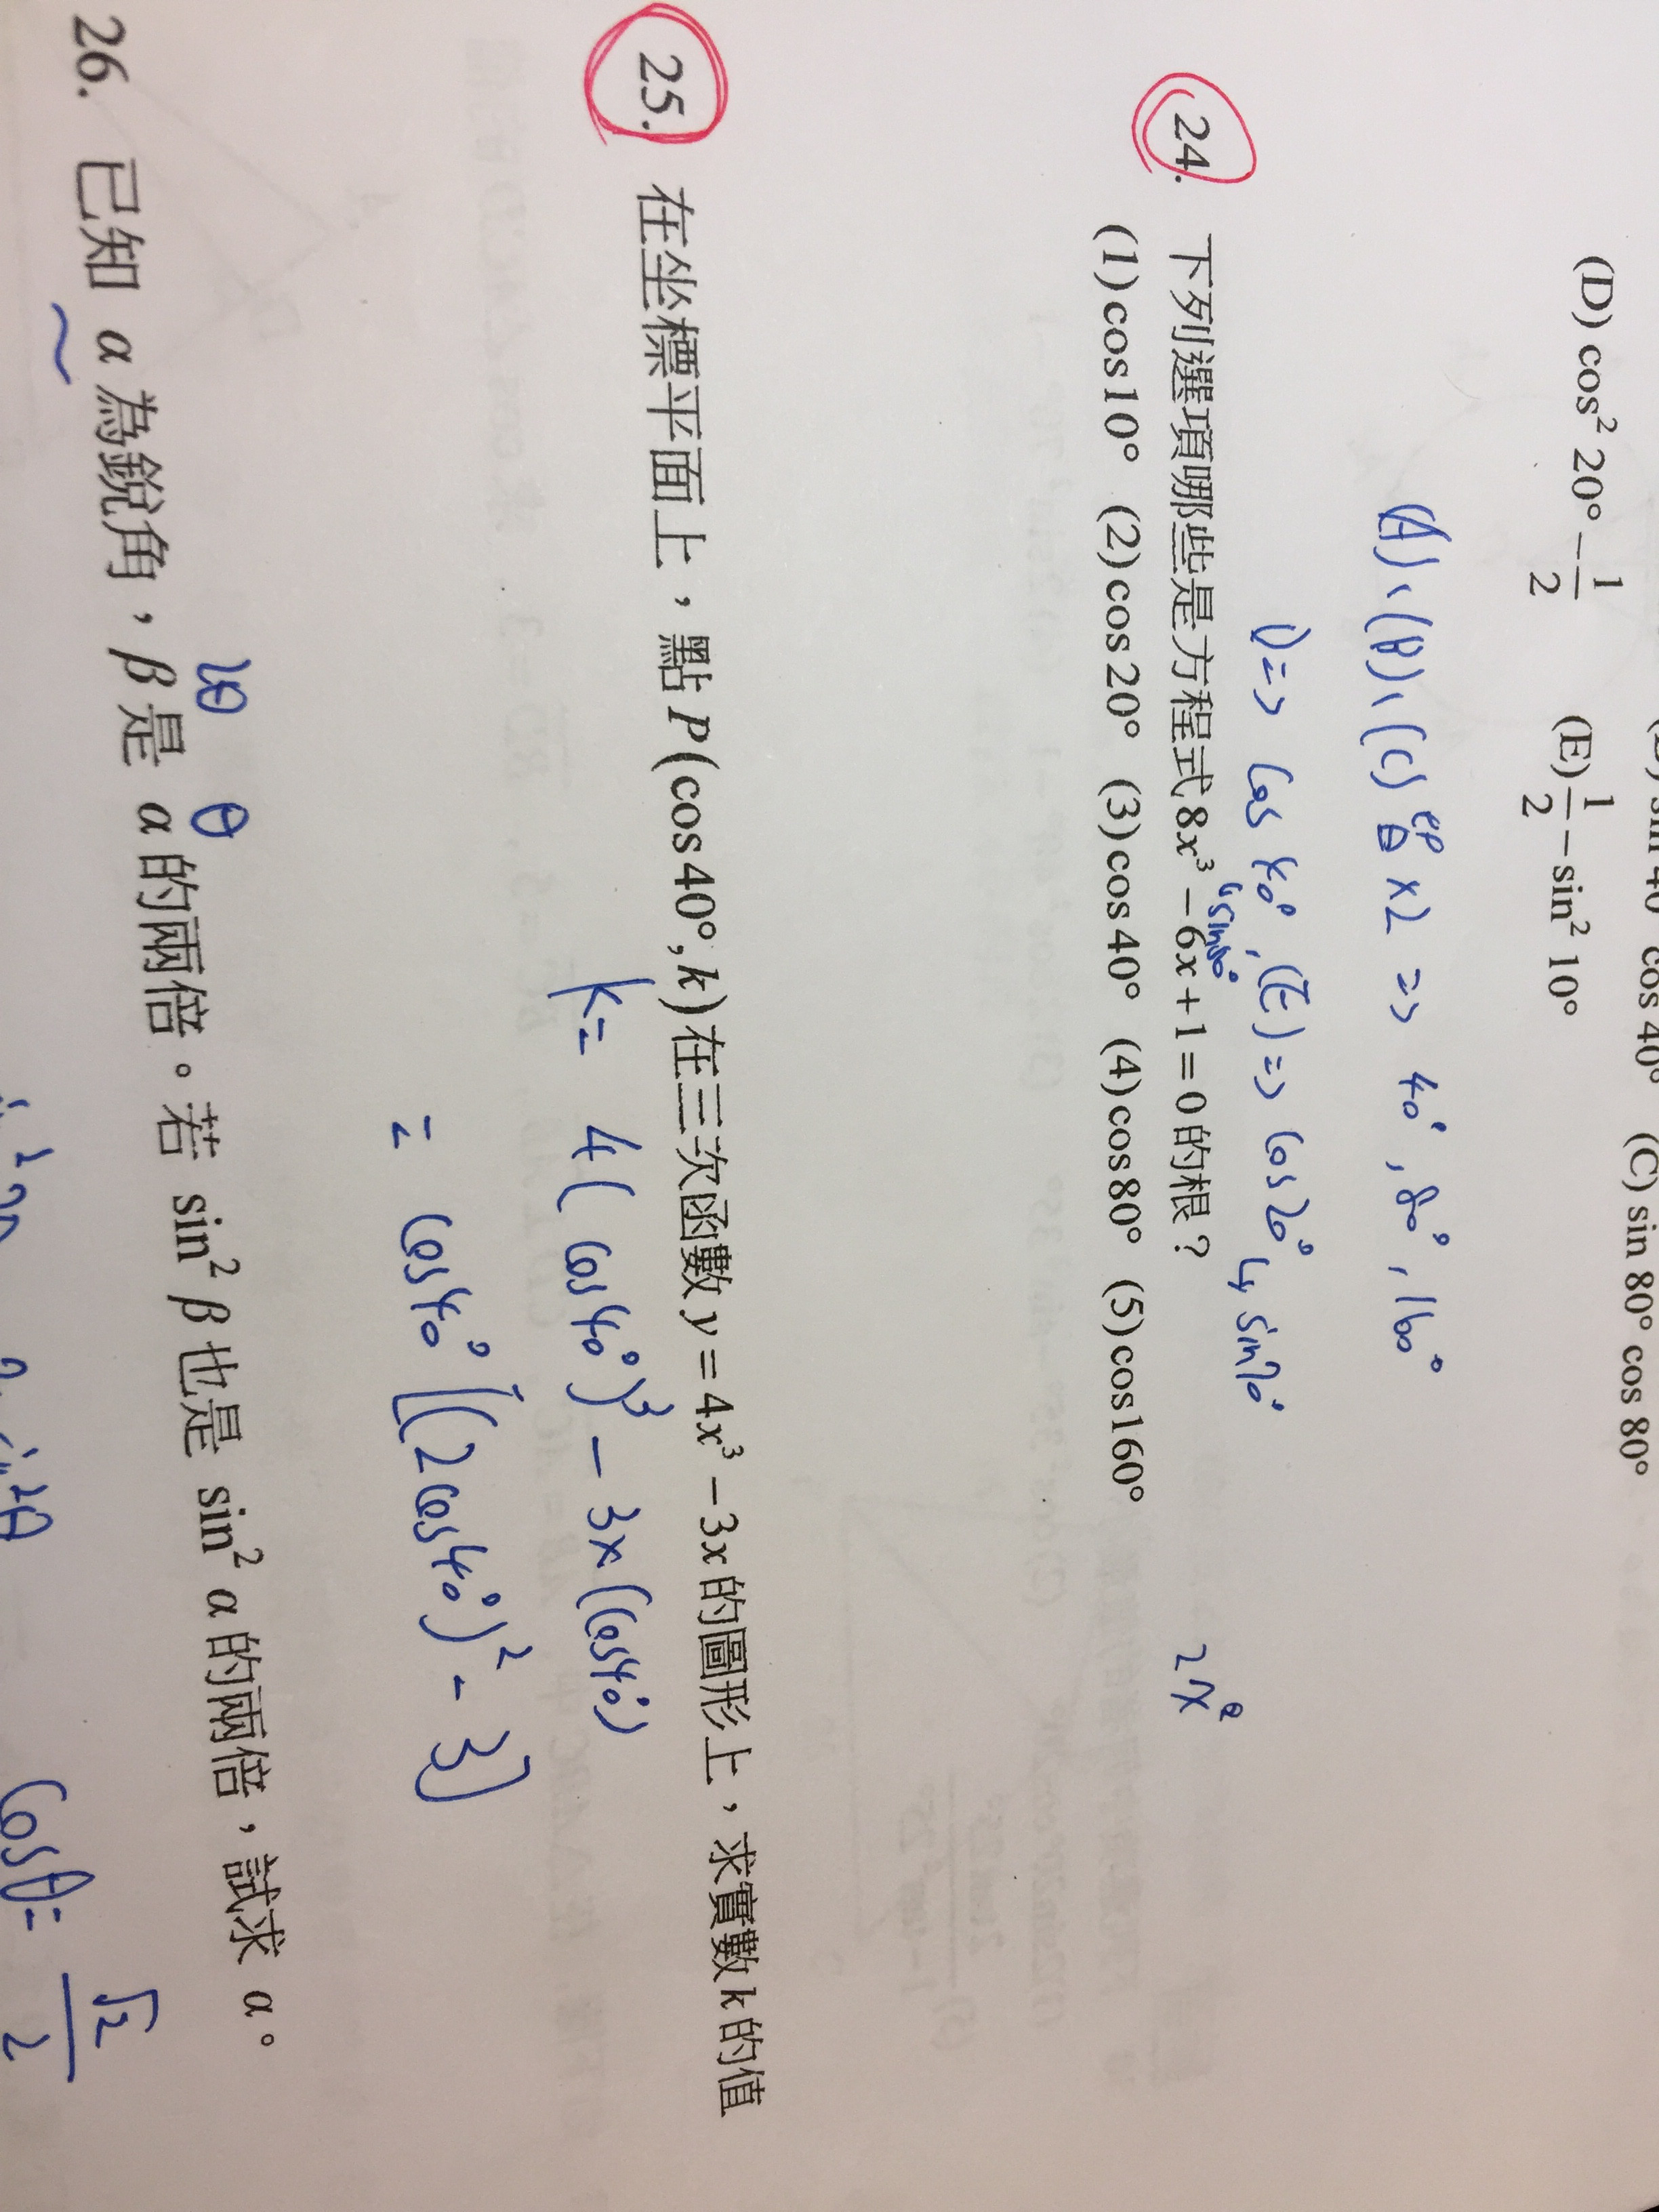 sin 40° cos 40° (C) sin 80° cos 80°
(D) cos² 20° − 1/2 (E) 1/2 − sin² 10°
(A)、(B)、(C) ×2 => 40°, 80°, 160°
D => cos 40°, (E) => cos 20° ↳ sin 70°
24. 下列選項哪些是方程式 8x³ − 6x + 1 = 0 的根？
(1) cos 10° (2) cos 20° (3) cos 40° (4) cos 80° (5) cos 160°
2x²
25. 在坐標平面上，點 P(cos 40°, k) 在三次函數 y = 4x³ − 3x 的圖形上，求實數 k 的值
k = 4(cos 40°)³ − 3×(cos 40°)
= cos 40° [(2cos 40°)² − 3]
2θ θ
26. 已知 α 為銳角，β 是 α 的兩倍。若 sin² β 也是 sin² α 的兩倍，試求 α。
cosθ = √2/2